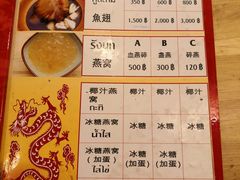 350 ฿ 600 ฿ 800 ฿
魚翅 1,500 ฿ 2,000 ฿ 3,000 ฿
รังนก A B C
燕窝 血燕碎 盏燕 碎燕
500 ฿ 300 ฿ 120 ฿
椰汁燕窝 กะทิ 椰汁 椰汁 椰汁
冰糖燕窝 น้ำใส 冰糖 冰糖 冰糖
冰糖燕窝 (加蛋) ใส่ไข่ 冰糖 (加蛋) 冰糖 (加蛋) 冰糖 (加蛋)